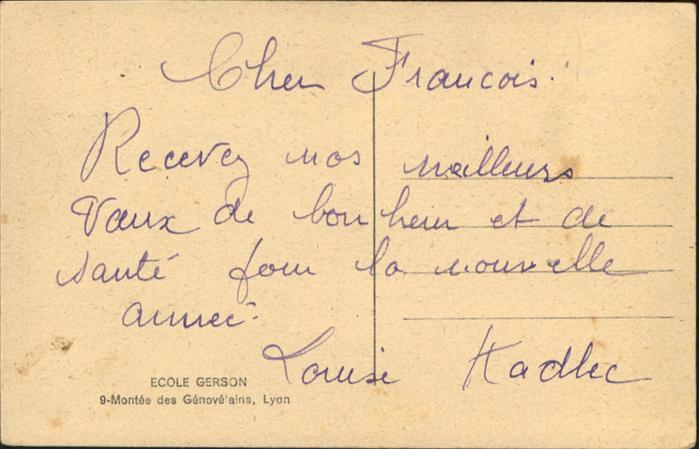 Cher Francois.
Recevez nos meilleurs
Vœux de bonheur et de
santé pour la nouvelle
année.
Louise Kadlec
ECOLE GERSON
9-Montée des Génové'ains, Lyon